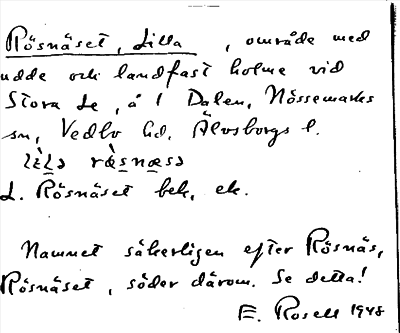 Rösnäset, Lilla, område med
udde och landfast holme vid
Stora Le, å 1 Dalen, Nössemarks
sn, Vedbo hd, Älvsborgs l.
L. Rösnäset bek, ek.
Namnet säkerligen efter Rösnäs,
Rösnäset, söder därom. Se detta!
E. Rosell 1948